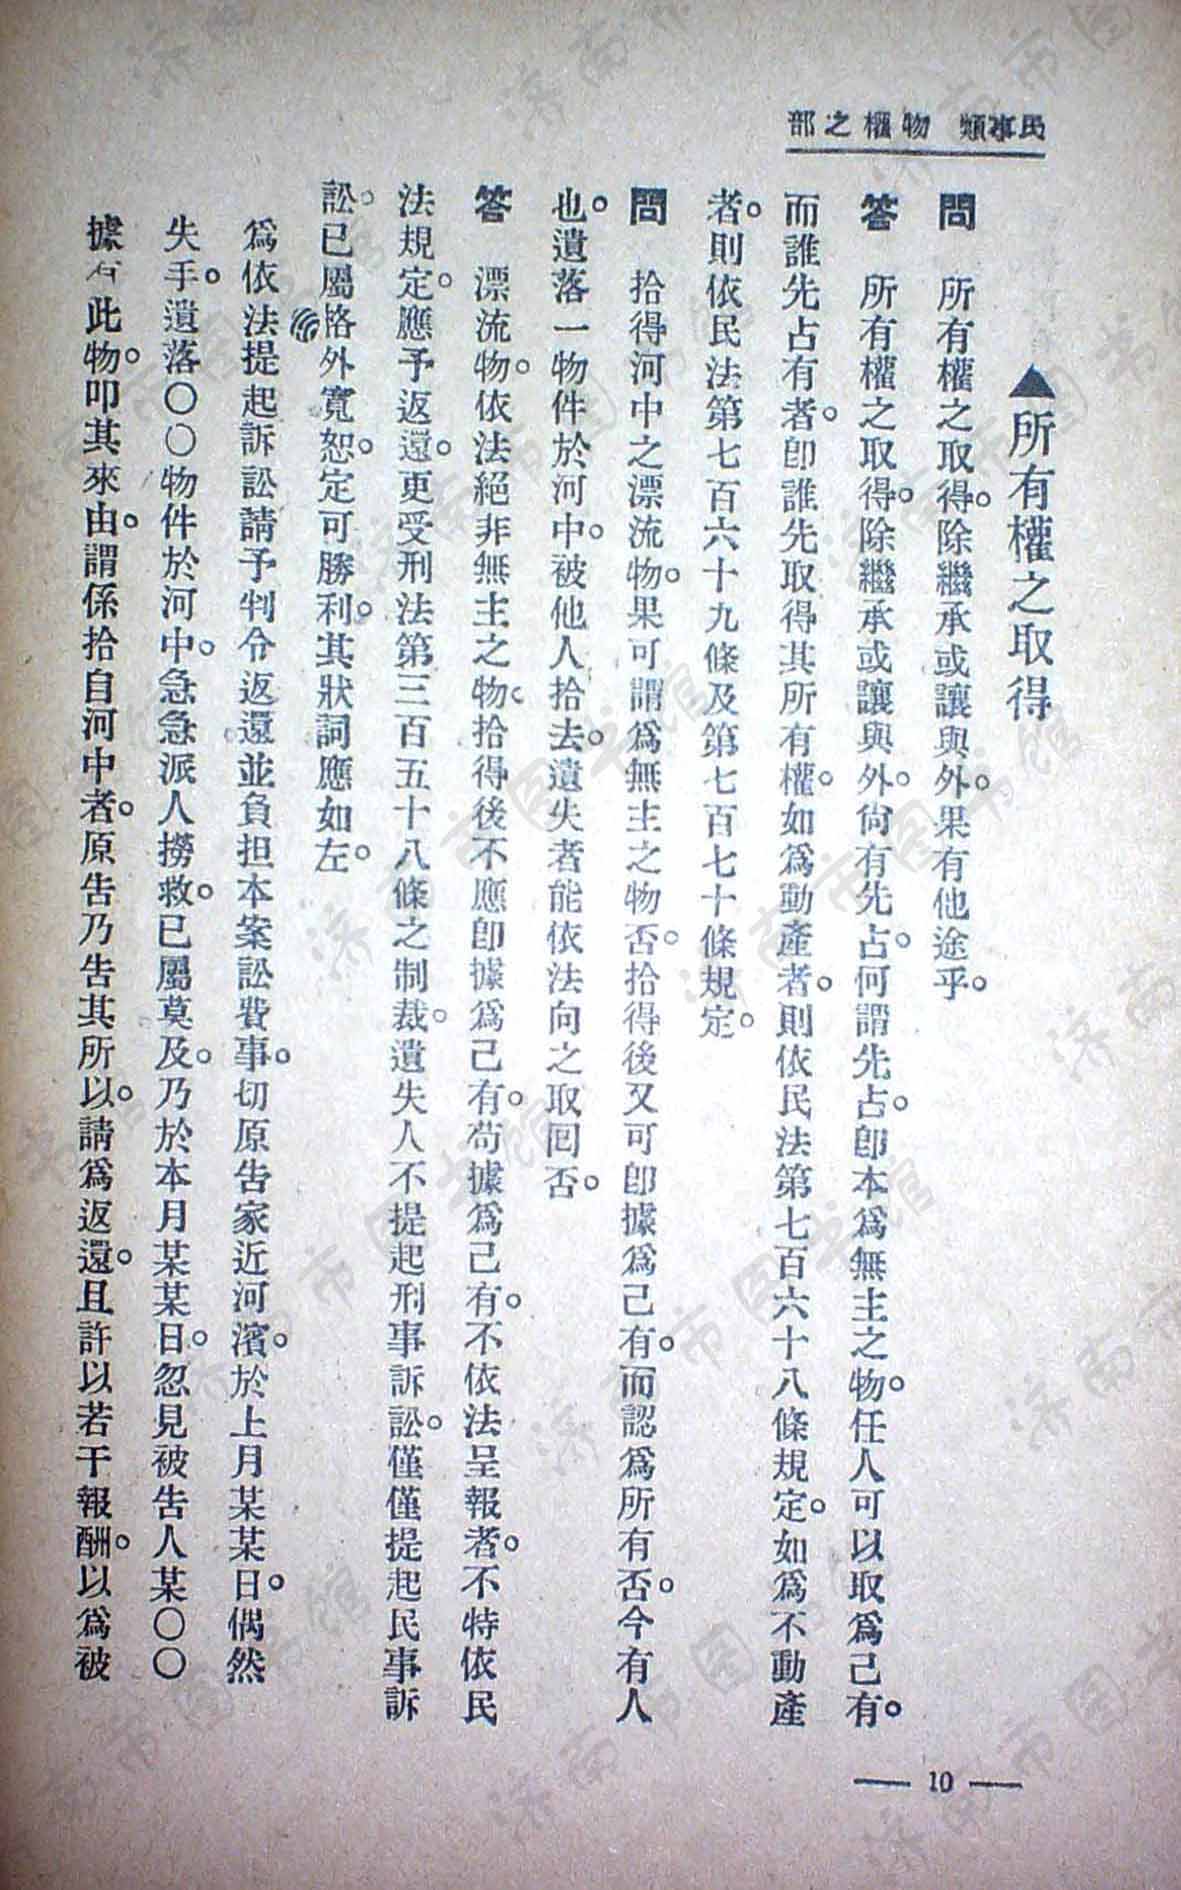 民事類　物權之部
▲所有權之取得
問　所有權之取得。除繼承或讓與外。果有他途乎。
答　所有權之取得。除繼承或讓與外。尙有先占。何謂先占。卽本爲無主之物。任人可以取爲己有。
而誰先占有者。卽誰先取得其所有權。如爲動產者。則依民法第七百六十八條規定。如爲不動產
者。則依民法第七百六十九條及第七百七十條規定。
問　拾得河中之漂流物。果可謂爲無主之物否。拾得後又可卽據爲己有。而認爲所有否。今有人
也。遺落一物件於河中。被他人拾去。遺失者能依法向之取回否。
答　漂流物。依法絕非無主之物。拾得後不應卽據爲己有。苟據爲己有。不依法呈報者。不特依民
法規定。應予返還。更受刑法第三百五十八條之制裁。遺失人不提起刑事訴訟。僅僅提起民事訴
訟。已屬格外寬恕。定可勝利。其狀詞應如左。
爲依法提起訴訟請予判令返還並負担本案訟費事。切原告家近河濱。於上月某某日。偶然
失手。遺落〇〇物件於河中。急急派人撈救。已屬莫及。乃於本月某某日。忽見被告人某〇〇
據有此物。叩其來由。謂係拾自河中者。原告乃告其所以。請爲返還。且許以若干報酬。以爲被
— 10 —
济南市图书馆